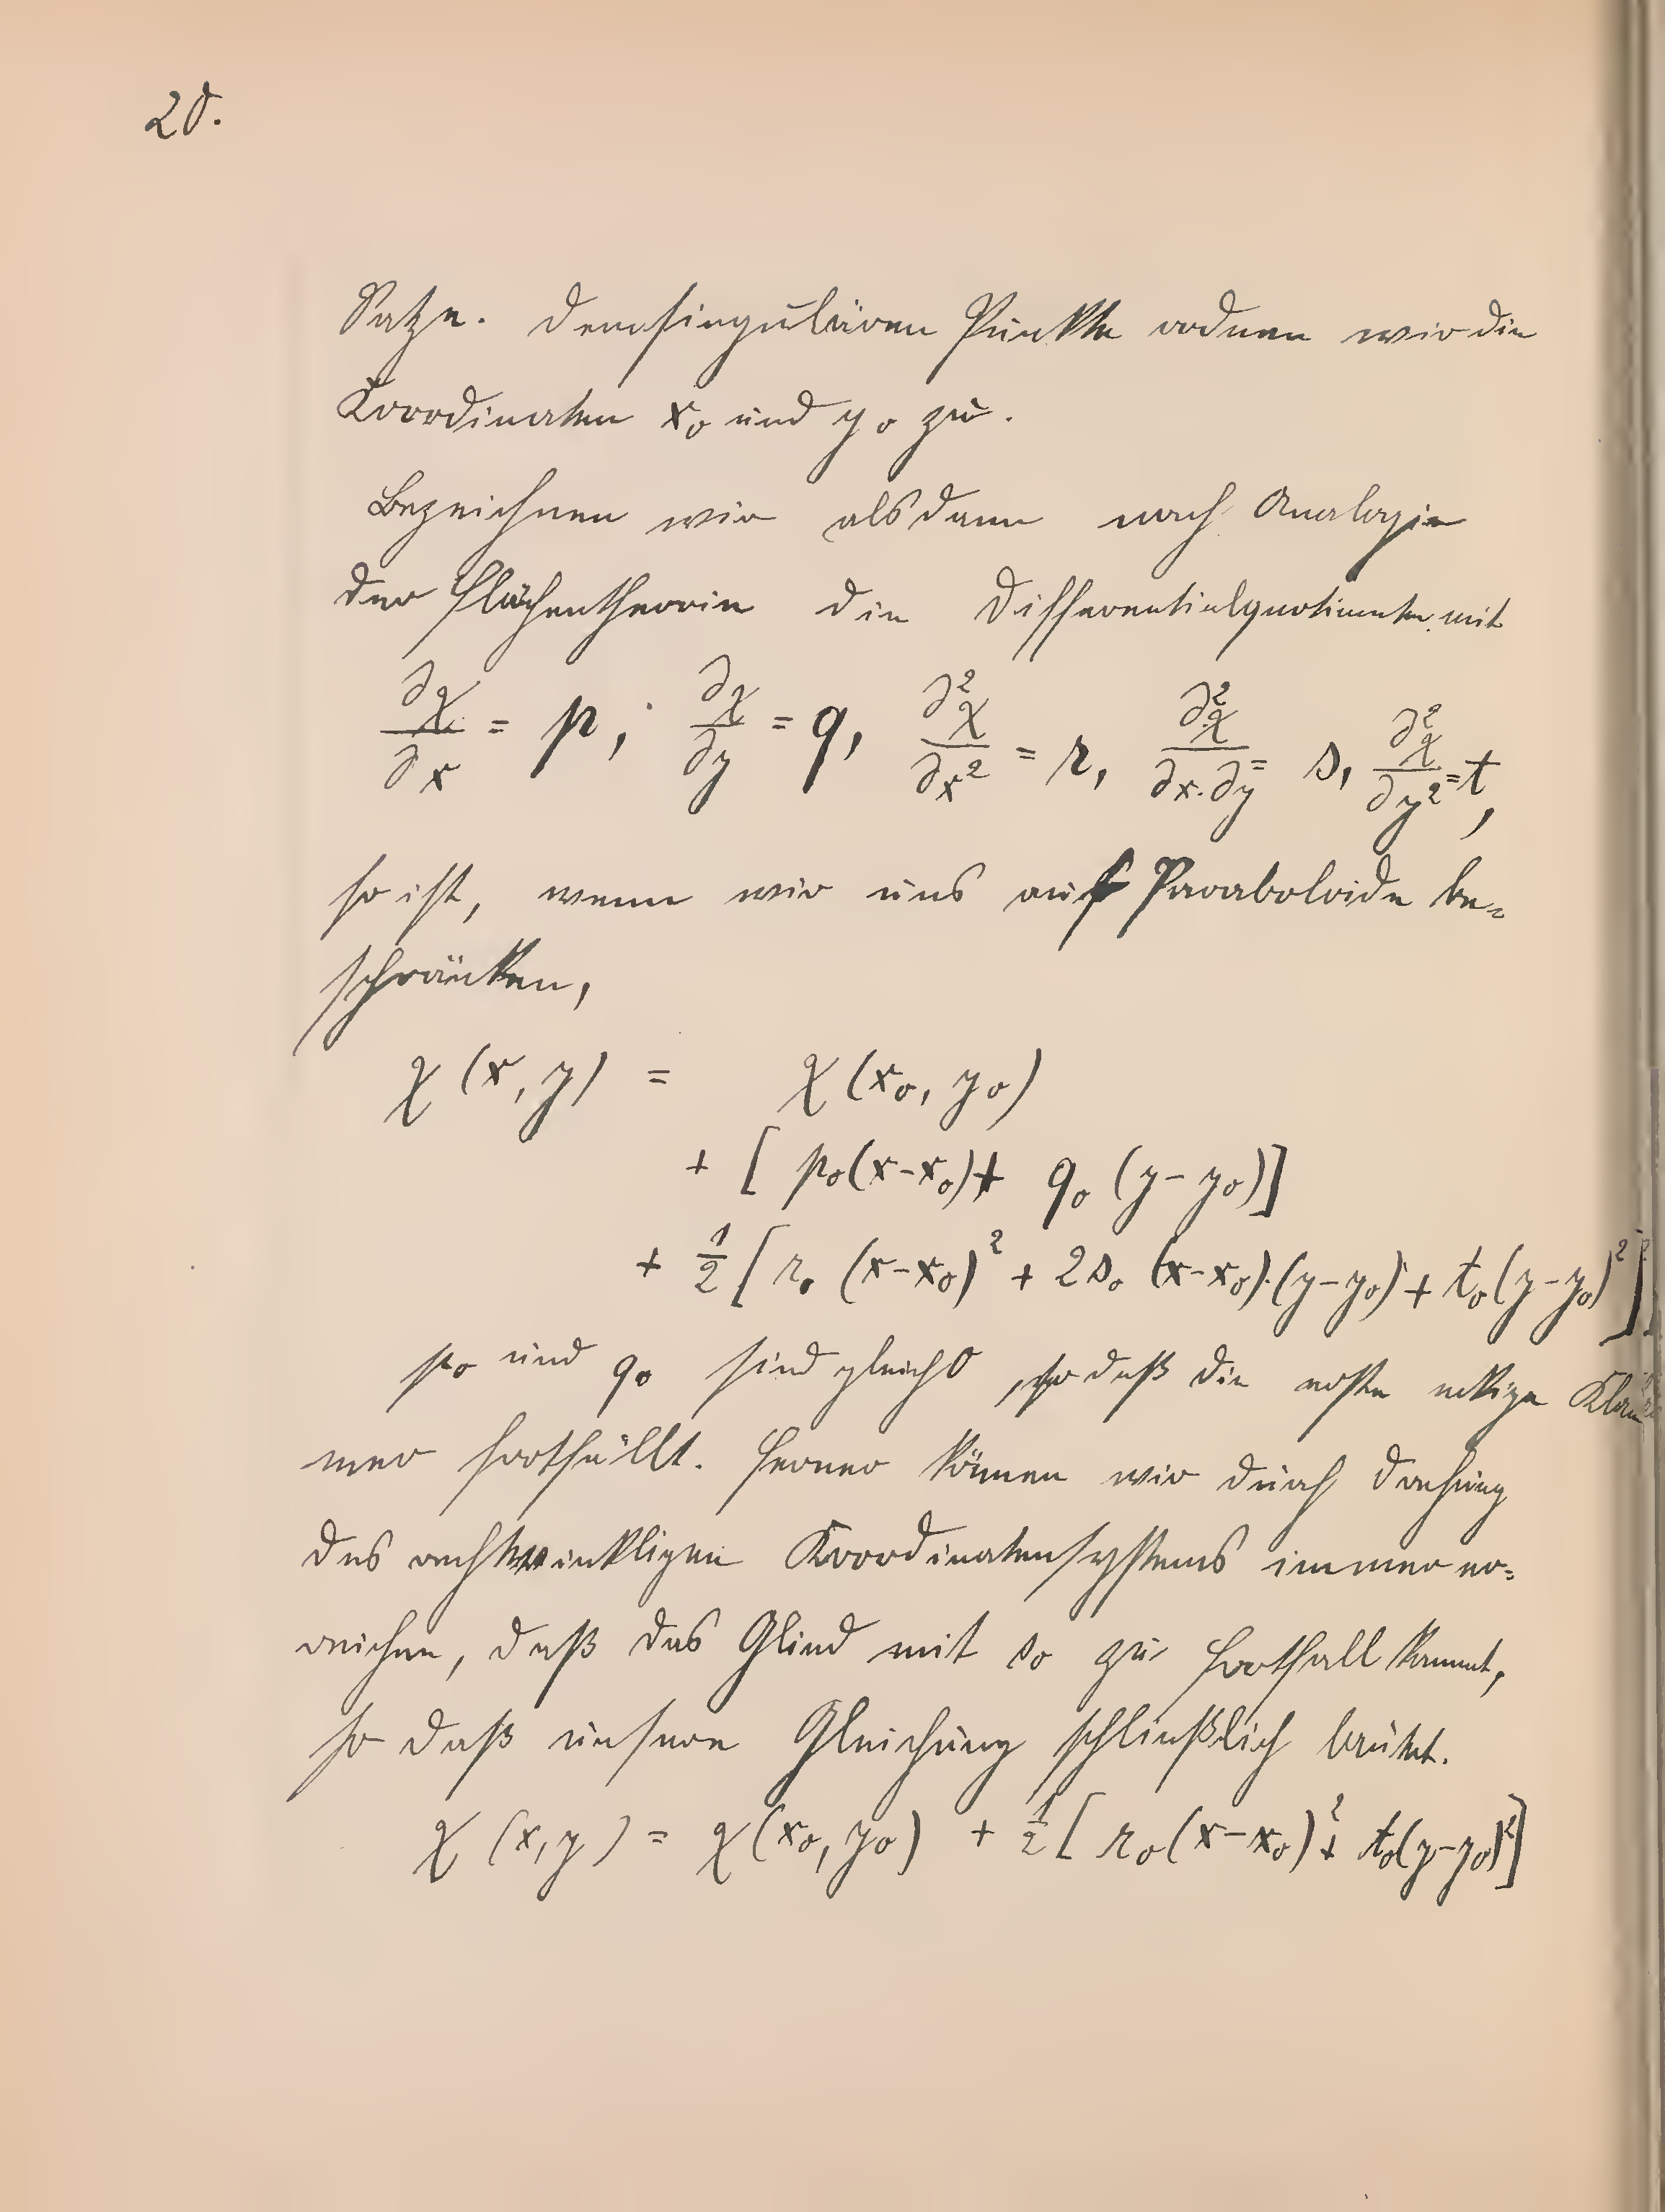 20.
Satze. Dem singulären Punkte ordnen wir die
Koordinaten x₀ und y₀ zu.
Bezeichnen wir alsdann nach Analogie
der Flächentheorie die Differentialquotienten mit
∂χ/∂x = p, ∂χ/∂y = q, ∂²χ/∂x² = r, ∂²χ/∂x·∂y = s, ∂²χ/∂y² = t,
so ist, wenn wir uns auf Paraboloide be=
schränken,
χ (x, y) = χ (x₀, y₀)
+ [ p₀(x-x₀) + q₀ (y-y₀)]
+ 1/2 [ r₀ (x-x₀)² + 2s₀ (x-x₀)·(y-y₀) + t₀(y-y₀)²]
p₀ und q₀ sind gleich 0, so daß die erste eckige Klam
mer fortfällt. Ferner können wir durch Drehung
des rechtwinkligen Koordinatensystems immer er=
reichen, daß das Glied mit s₀ zu Fortfall kommt,
so daß unsere Gleichung schließlich lautet.
χ (x, y) = χ(x₀, y₀) + 1/2 [ r₀(x-x₀)² + t₀(y-y₀)²]